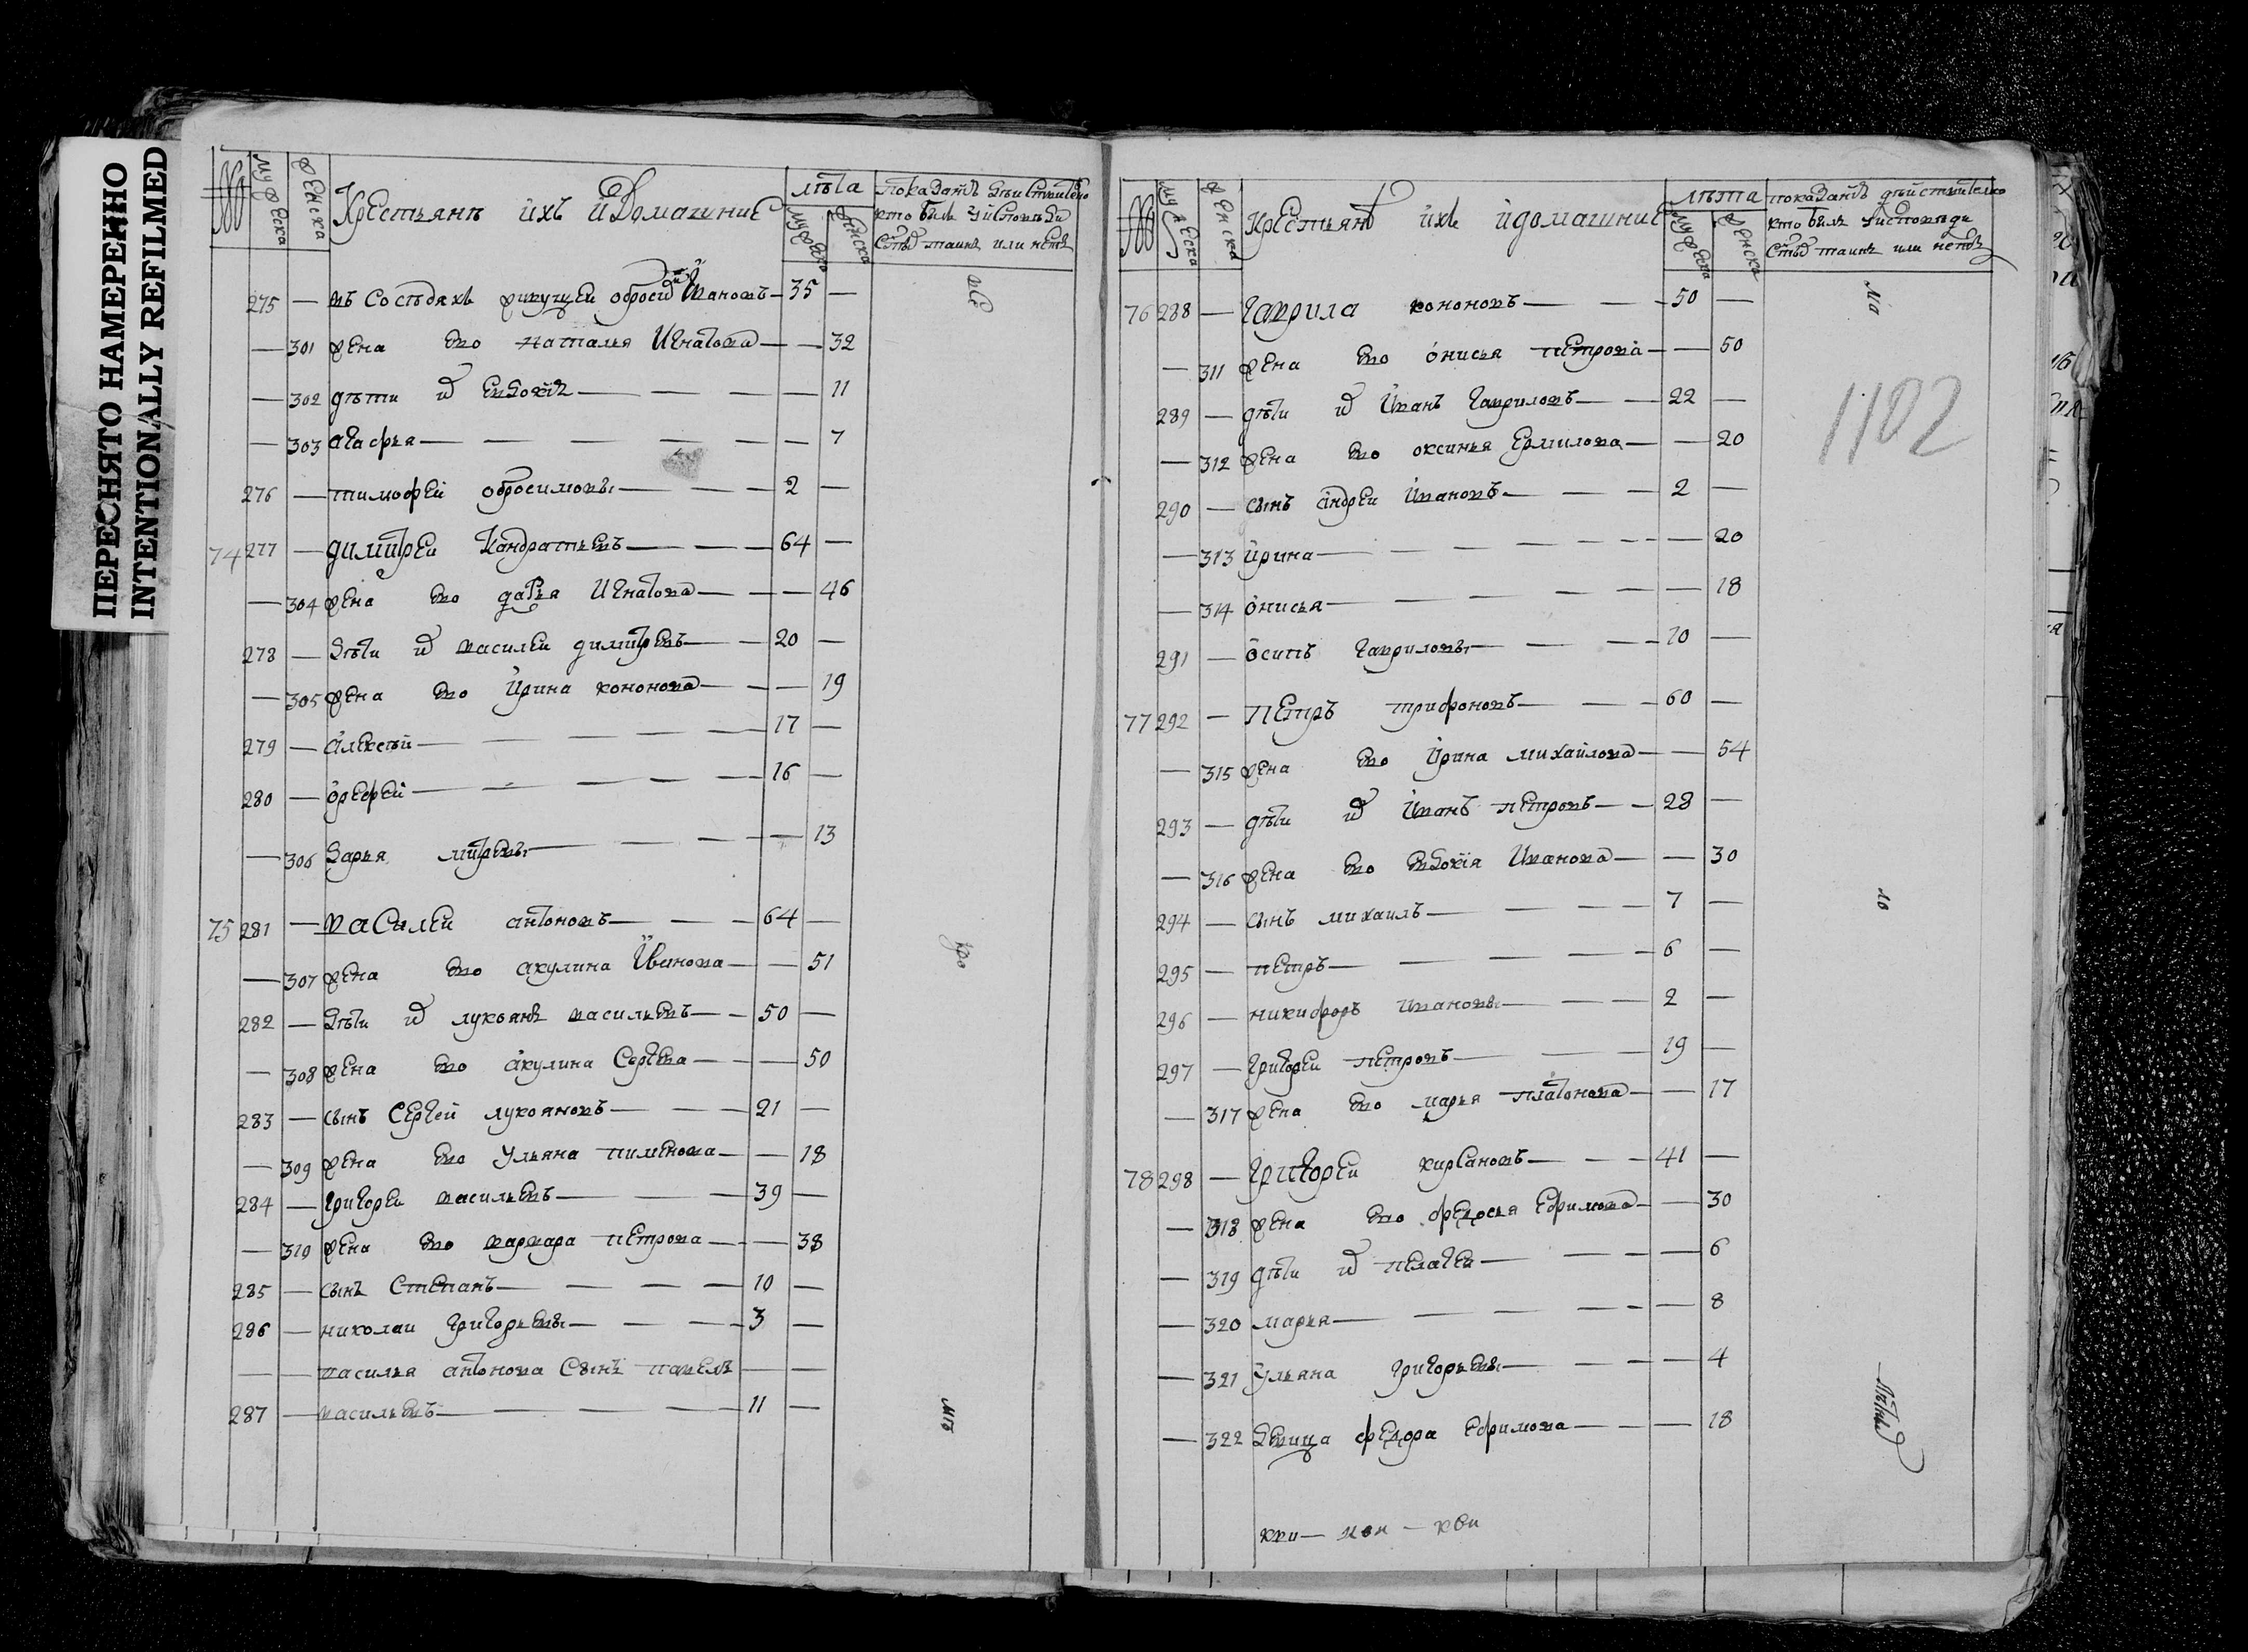 ПЕРЕСНЯТО НАМЕРЕННО
INTENTIONALLY REFILMED
№ мужеска женска Крестьянъ ихъ и Домашние лѣта мужеска женска показанѣ дѣйствително
кто былъ у исповѣди
Стыхъ таинъ или нетъ
275 — въ сосѣдяхъ живущеи обросим Ивановъ — 35 —
— 301 жена ево наталья Игнатова — — 32
— 302 дѣти их Евдокия — — 11
— 303 агафья — — 7
276 — тимофей обросимовы — 2 —
74 277 — димитреи Кандратьевъ — 64 —
— 304 жена ево дарья Игнатова — — 46
278 — дѣти их василеи димитревъ — 20 —
— 305 жена ево Ирина кононова — — 19
279 — алексѣй — 17 —
280 — орефей — 16 —
— 306 дарья митревы — — 13
75 281 — василей антоновъ — 64 —
— 307 жена ево акулина Иванова — — 51
282 — дѣти их лукоянъ васильевъ — 50 —
— 308 жена ево акулина Сергѣева — — 50
283 — сынъ Сергей лукояновъ — 21 —
— 309 жена ево ульяна пименова — — 18
284 — григореи васильевъ — 39 —
— 310 жена ево варвара петрова — — 38
285 — сынъ Степанъ — 10 —
286 — николаи григорьевы — 3 —
— — василья антонова Сынъ павелъ — —
287 — васильевъ — 11 —
№ мужеска женска Крестьянъ ихъ и домашние лѣта мужеска женска показанѣ дѣйствително
кто былъ у исповѣди
Стыхъ таинъ или нетъ
1102
76 288 — гаврила кононовъ — 50 —
— 311 жена ево онисья петрова — — 50
289 — дѣти их Иванъ гавриловъ — 22 —
— 312 жена ево оксинья Ермилова — — 20
290 — сынъ андреи Ивановъ — 2 —
— 313 ирина — — 20
— 314 онисья — — 18
291 — осипъ гавриловы — 10 —
77 292 — петръ трифоновъ — 60 —
— 315 жена ево Ирина михайлова — — 54
293 — дѣти их Иванъ петровъ — 28 —
— 316 жена ево евдокия Иванова — — 30
294 — сынъ михаилъ — 7 —
295 — петръ — 6 —
296 — никифоръ ивановы — 2 —
297 — григореи петровъ — 19 —
— 317 жена ево марья платонова — — 17
78 298 — григореи кирсановъ — 41 —
— 318 жена ево федосья Ефимова — — 30
— 319 дѣти их пелагеи — — 6
— 320 марья — — 8
— 321 ульяна григорьевы — — 4
— 322 девица федора Ефимова — — 18